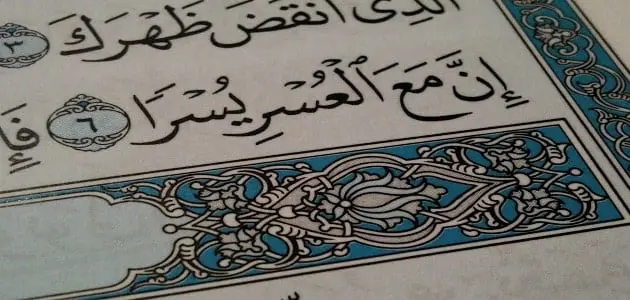 ٱلَّذِىٓ أَنقَضَ ظَهْرَكَ ٣
إِنَّ مَعَ ٱلْعُسْرِ يُسْرًا ٦ فَإِ